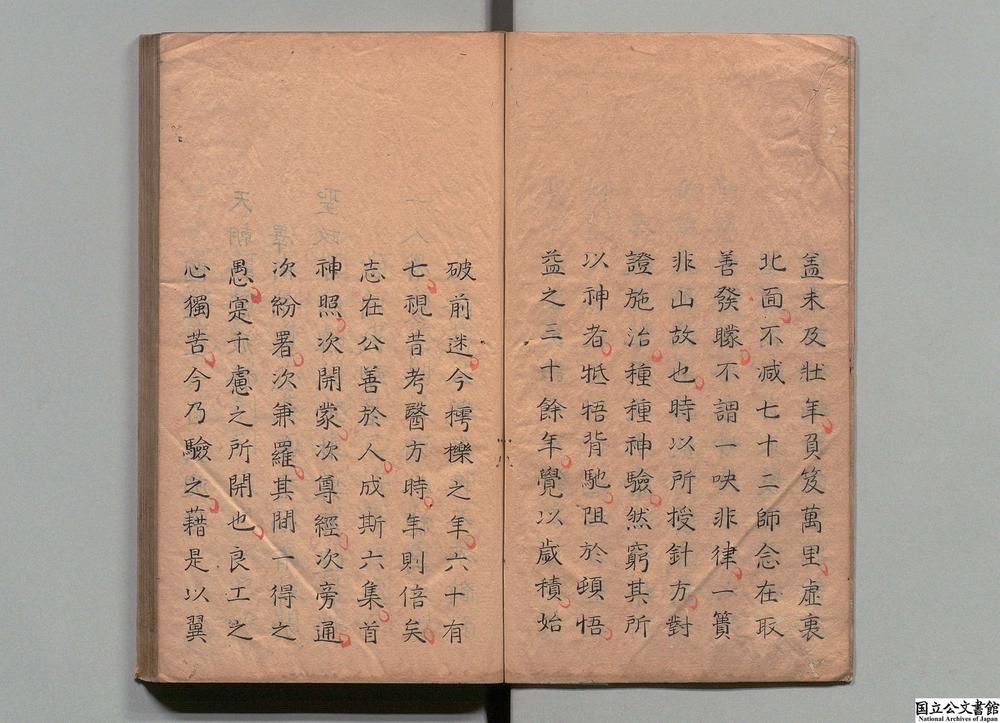 盖未及壮年負笈萬里虛裏
北面不减七十二師念在取
善發矇不謂一吷非律一簣
非山故也時以所授針方對
證施治種種神驗然窮其所
以神者牴牾背馳阻於頓悟
益之三十餘年覺以歲積始
破前迷今樗櫟之年六十有
一人七視昔考醫方時年則倍矣
志在公善於人成斯六集首
聖政神照次開蒙次尊經次旁通
次紛署次兼羅其間一得之
天朝愚寔千慮之所開也良工之
心獨苦今乃驗之藉是以翼
国立公文書館
National Archives of Japan